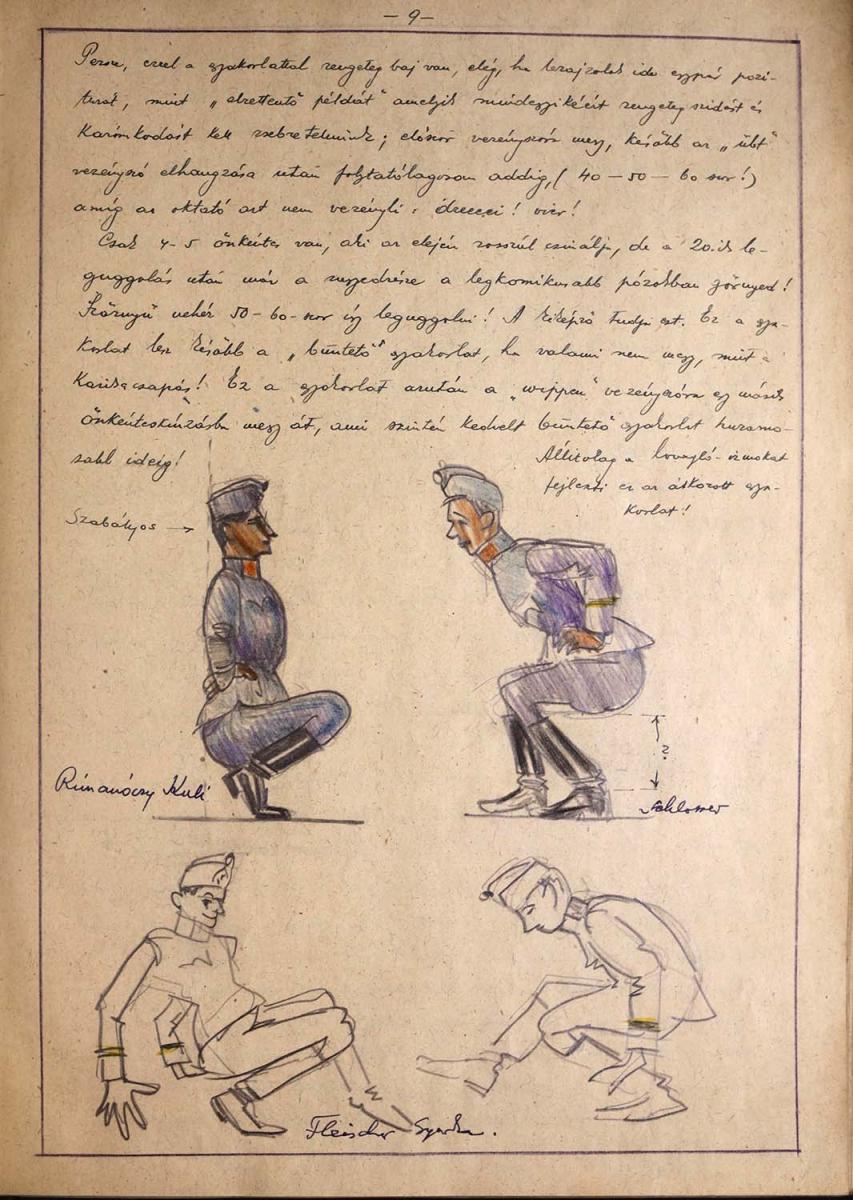 — 9 —
Persze, ezzel a gyakorlattal rengeteg baj van, elég, ha lerajzolok ide egypár pozi-
turát, mint „elrettentő példát" amelyik mindegyikéért rengeteg szidást és
Káromkodást kell zsebretennünk; először vezényszóra megy, később az „übt"
vezényszó elhangzása után folytatólagosan addig, (40 — 50 — 60 szor!)
amíg az oktató azt nem vezényli : dreeeei! vier!
Csak 4-5 önkéntes van, aki az elején rosszúl csinálja, de a 20.ik le-
guggolás után már a negyedrésze a legkomikusabb pózokban görnyed!
Szörnyű nehéz 50-60-szor így leguggolni! A kiképző tudja ezt. Ez a gya-
korlat lesz később a „büntető" gyakorlat, ha valami nem megy, mint a
Karikacsapás! Ez a gyakorlat azután a „wippen" vezényszóra egy másik
önkénteskínzásba megy át, ami szintén kedvelt büntető gyakorlat huzamo-
sabb ideig!
Állítólag a lovagló-izmokat
fejleszti ez az átkozott gya-
korlat!
Szabályos →
?
Rimanóczy Kuli
Schlosser
Fleischer Gyurka.